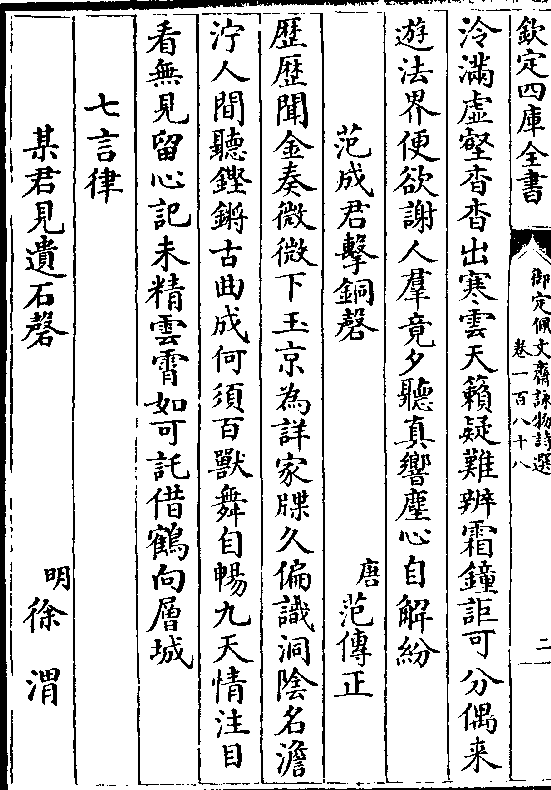 欽定四庫全書
御定佩文齋詠物詩選
卷一百八十八
二
泠滿虛壑杳杳出寒雲天籟疑難辨霜鐘詎可分偶来
遊法界便欲謝人羣竟夕聽真響塵心自解紛
范成君擊銅磬
唐 范傳正
歴歴聞金奏微微下玉京為詳家牒久偏識洞陰名澹
泞人間聽鏗鏘古曲成何須百獸舞自暢九天情注目
看無見留心記未精雲霄如可託借鶴向層城
七言律
某君見遺石磬
明 徐渭